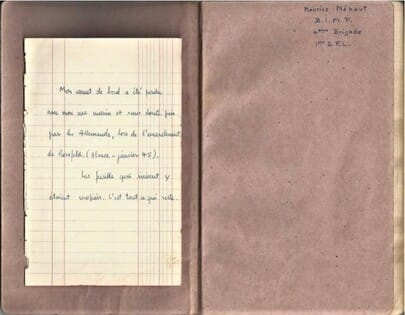 Mon carnet de bord a été perdu
avec mon sac marin et sans doute pris
par les Allemands, lors de l'encerclement
de Rossfeld. (Alsace - janvier 45).
Les feuilles qui suivent y
étaient copiées. C'est tout ce qui reste.
Maurice Méhaut
B.I.M.P.
4ème Brigade
1ère D.F.L.